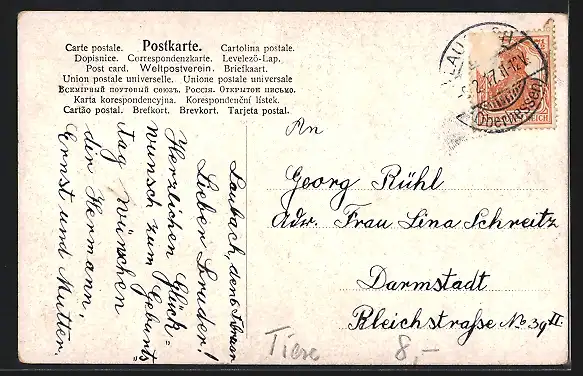 Carte postale. Postkarte. Cartolina postale.
Dopisnice. Correspondenzkarte. Levelező-Lap.
Post card. Weltpostverein. Briefkaart.
Union postale universelle. Unione postale universale
Всемірный почтовый союзъ. Россія. Открытое письмо.
Karta korespondencyjna. Korespondenční lístek.
Cartão postal. Brefkort. Brevkort. Tarjeta postal.
Laubach, den
Lieber Bruder!
Herzlichen Glück=
wunsch zum Geburts
tag wünschen
dir Hermann,
Ernst und Mutter.
An
Georg Rühl
Adr. Frau Lina Schreitz
Darmstadt
Bleichstraße No 39 II.
LAUBACH
Oberhessen
REICH
Tiere
8,-